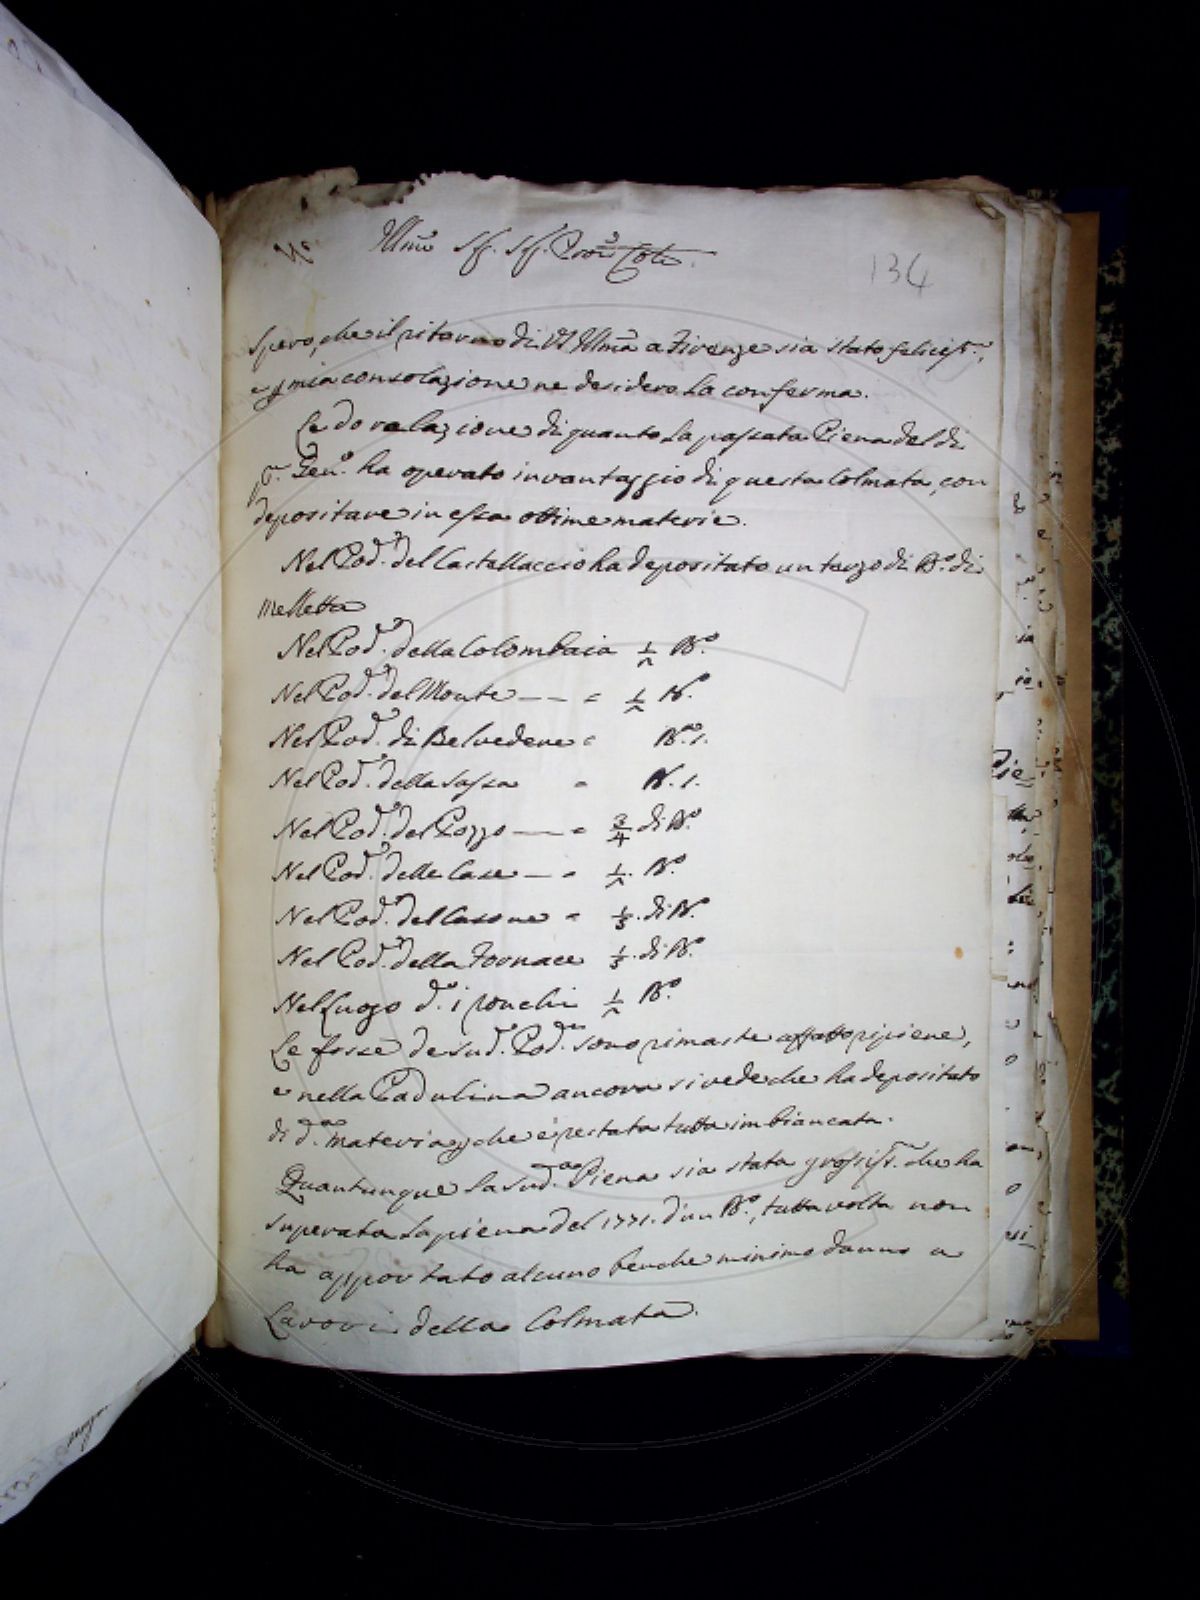 Illmo Sig. Sig. Pron Cole.
134
Spero, che il ritorno di VS Illma a Firenze sia stato felicissmo,
e p mia consolazione ne desidero la conferma.
Le do relazione di quanto la passata Piena del di
pmo. Geno. ha operato in vantaggio di questa Colmata, con
depositare in essa ottime materie.
Nel Pode. del Castellaccio ha depositato un terzo di Bo. di
melletta
Nel Pode. della Colombaia 1/2 Bo.
Nel Pode. del Monte — — = 1/2 Bo.
Nel Pode. di Belvedere = Bo. 1.
Nel Pode. della Sassa = Bo. 1.
Nel Pode. del Pozzo — = 3/4 di Bo.
Nel Pode. delle Case — = 1/2. Bo.
Nel Pode. del Casone = 1/3. di Bo.
Nel Pode. della Fornace 1/3. di Bo.
Nel Luogo do. i ronchi 1/2 Bo.
Le fosse de sudi. Podi. sono rimaste affatto ripiene,
e nella Padulina ancora si vede che ha depositato
di da. materia, che è restata tutta imbiancata.
Quantunque la suda. Piena sia stata grossissma. che ha
superata la piena del 1771. d'un Bo., tutta volta non
ha apportato alcuno benche minimo danno a
Lavori della Colmata.
Pie